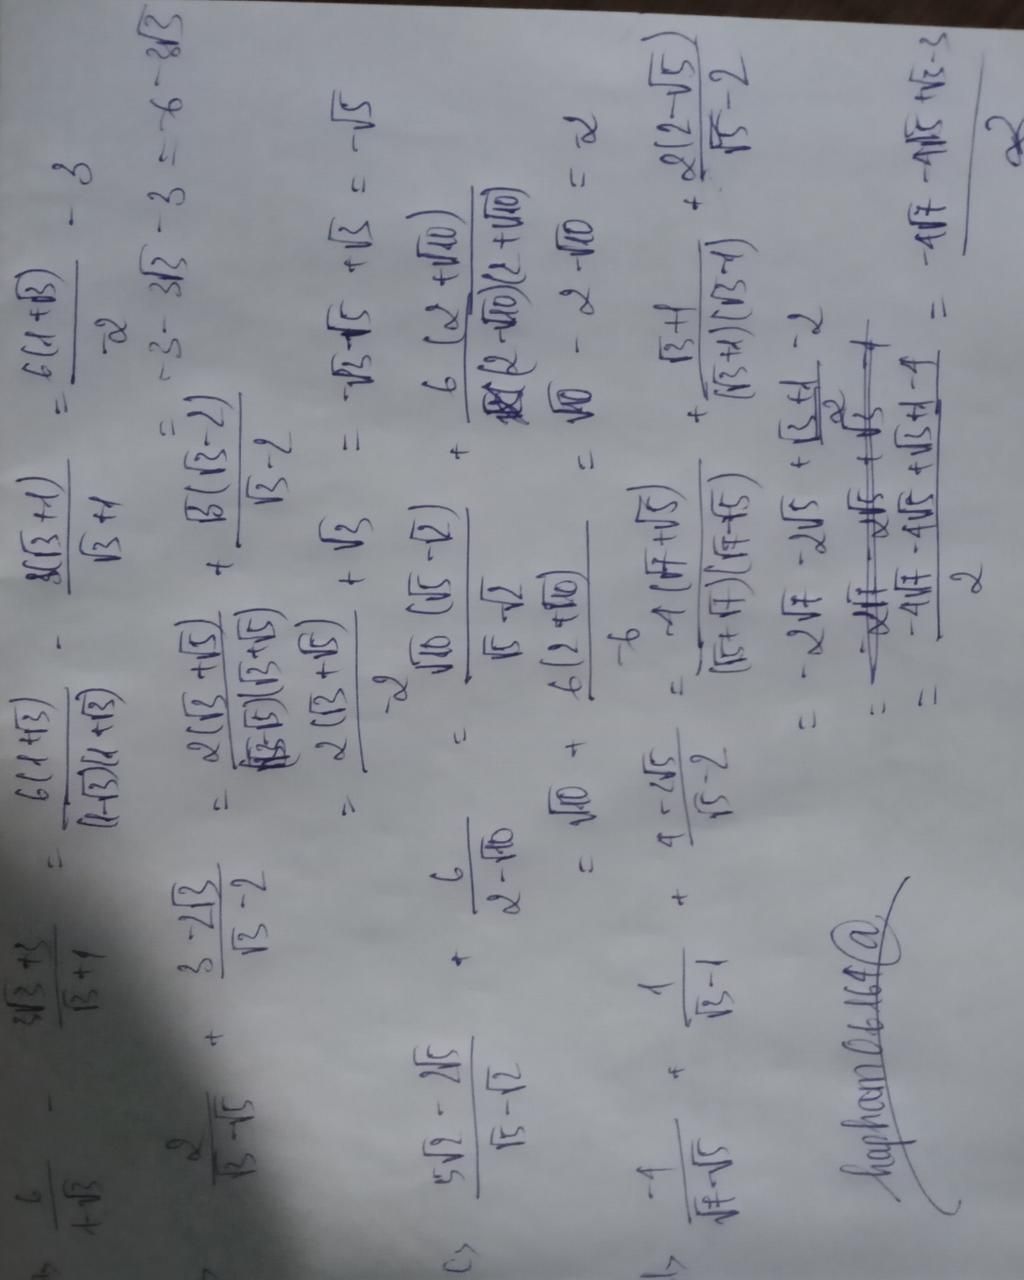 6/(1+√3) - (3√3+3)/(√3+1) = 6(1+√3)/((1-√3)(1+√3)) - 3(√3+1)/(√3+1) = 6(1+√3)/-2 - 3
= -3 - 3√3 - 3 = -6 - 3√3
2/(√3-√5) + (3-2√3)/(√3-2) = 2(√3+√5)/((√3-√5)(√3+√5)) + √3(√3-2)/(√3-2)
= 2(√3+√5)/-2 + √3 = -√3-√5 + √3 = -√5
c) (5√2 - 2√5)/(√5-√2) + 6/(2-√10) = √10(√5-√2)/(√5-√2) + 6(2+√10)/((2-√10)(2+√10))
= √10 + 6(2+√10)/-6 = √10 - 2 - √10 = -2
-1/(√7-√5) + 1/(√3-1) + (4-2√5)/(√5-2) = -1(√7+√5)/((√5+√7)(√7-√5)) + (√3+1)/((√3+1)(√3-1)) + 2(2-√5)/(√5-2)
= -2√7 - 2√5 + (√3+1)/2 - 2
= (-4√7 - 4√5 + √3+1-4)/2 = (-4√7 - 4√5 + √3-3)/2